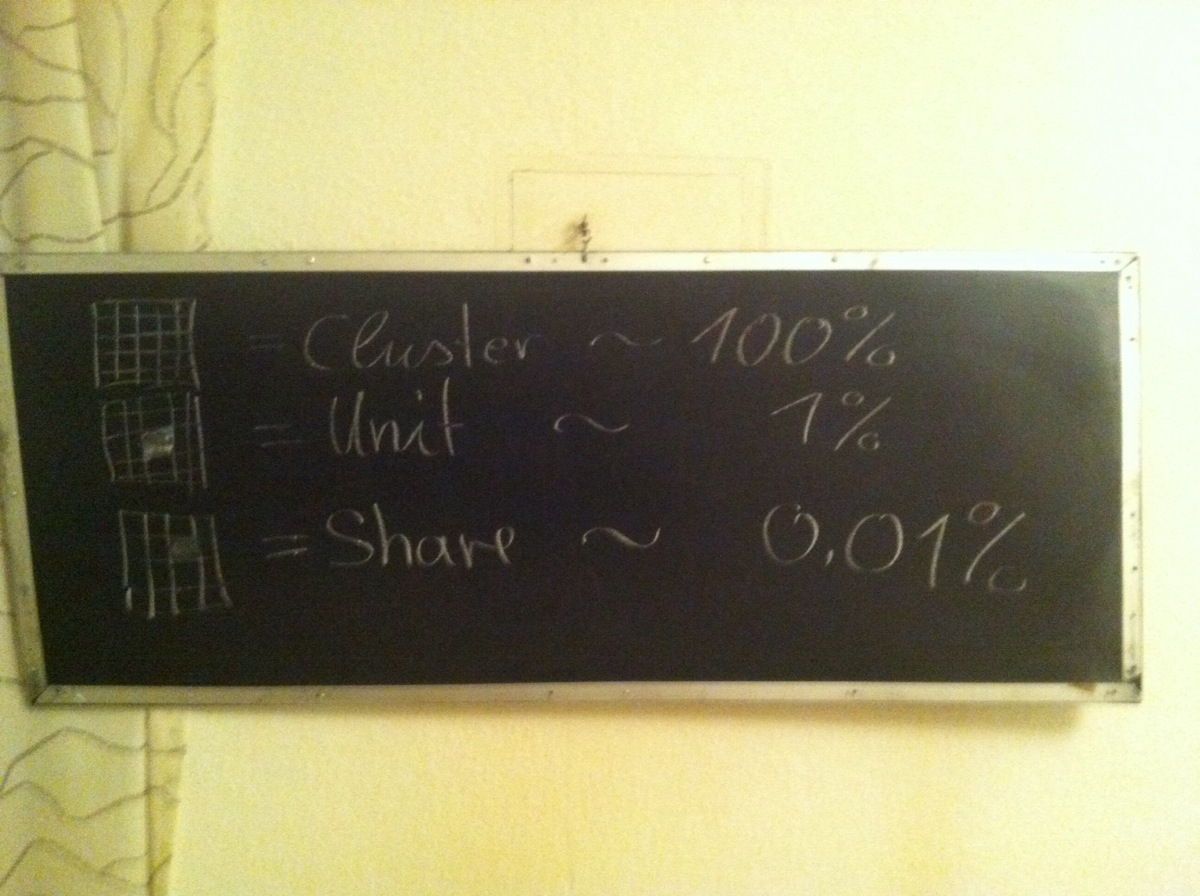 = Cluster ~ 100%
= Unit ~ 1%
= Share ~ 0.01%